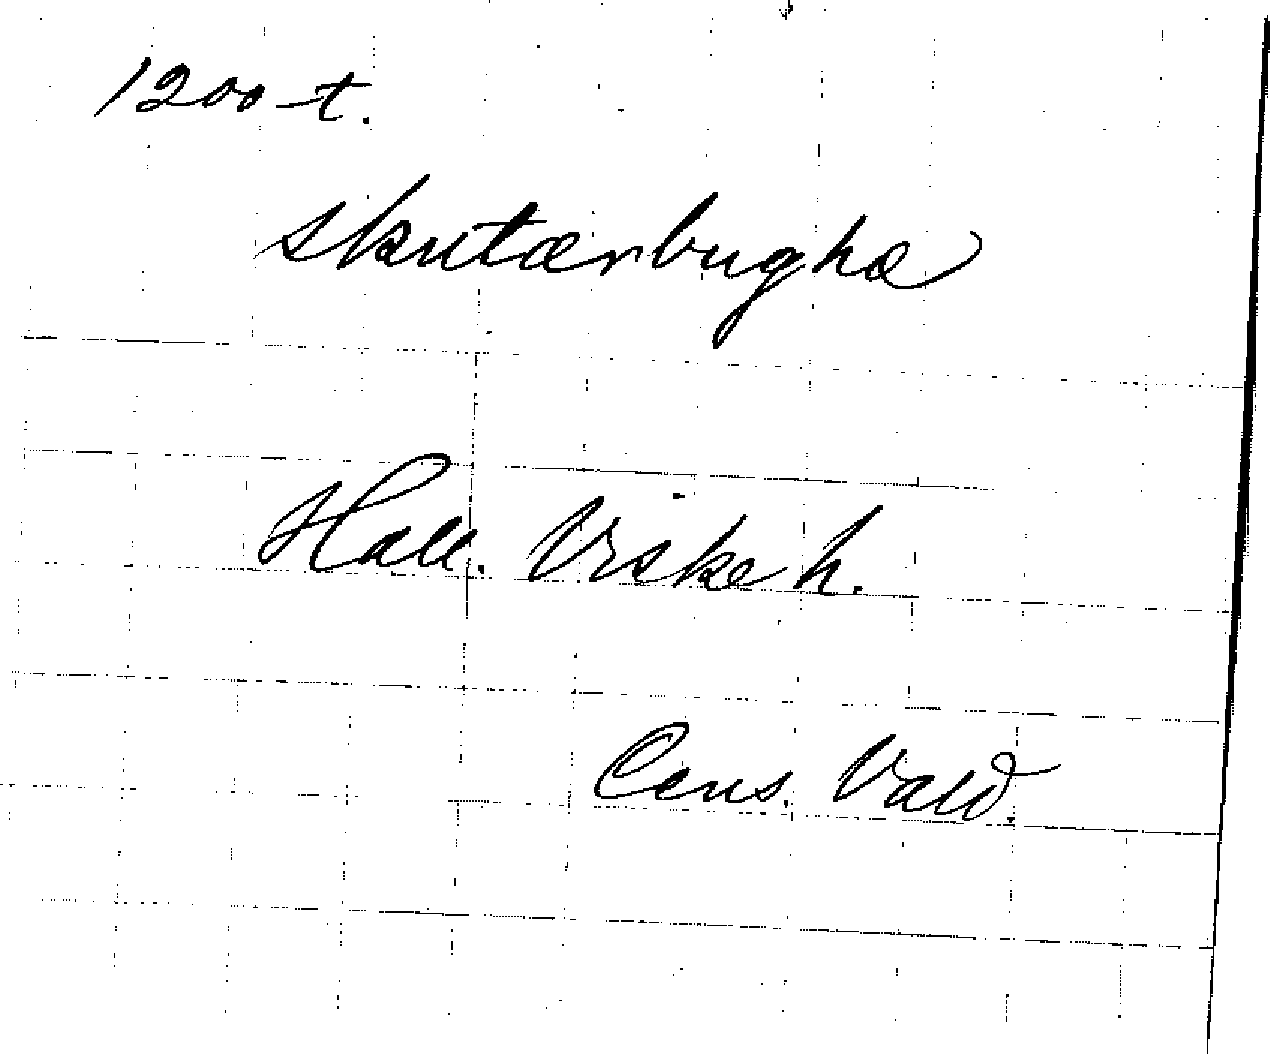 1200-t.
skutærbughæ
Hall. Viske h.
Cens. Vald.